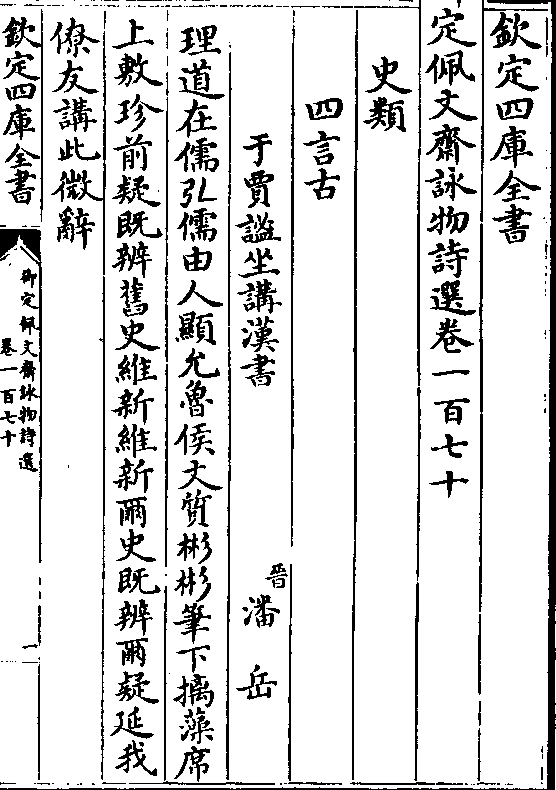 欽定四庫全書
定佩文齋詠物詩選卷一百七十
史類
四言古
于賈謐坐講漢書
晉
潘岳
理道在儒弘儒由人顯允魯侯文質彬彬筆下摛藻席
上敷珍前疑既辨舊史維新維新爾史既辨爾疑延我
僚友講此微辭
欽定四庫全書
御定佩文齋詠物詩選
卷一百七十
一